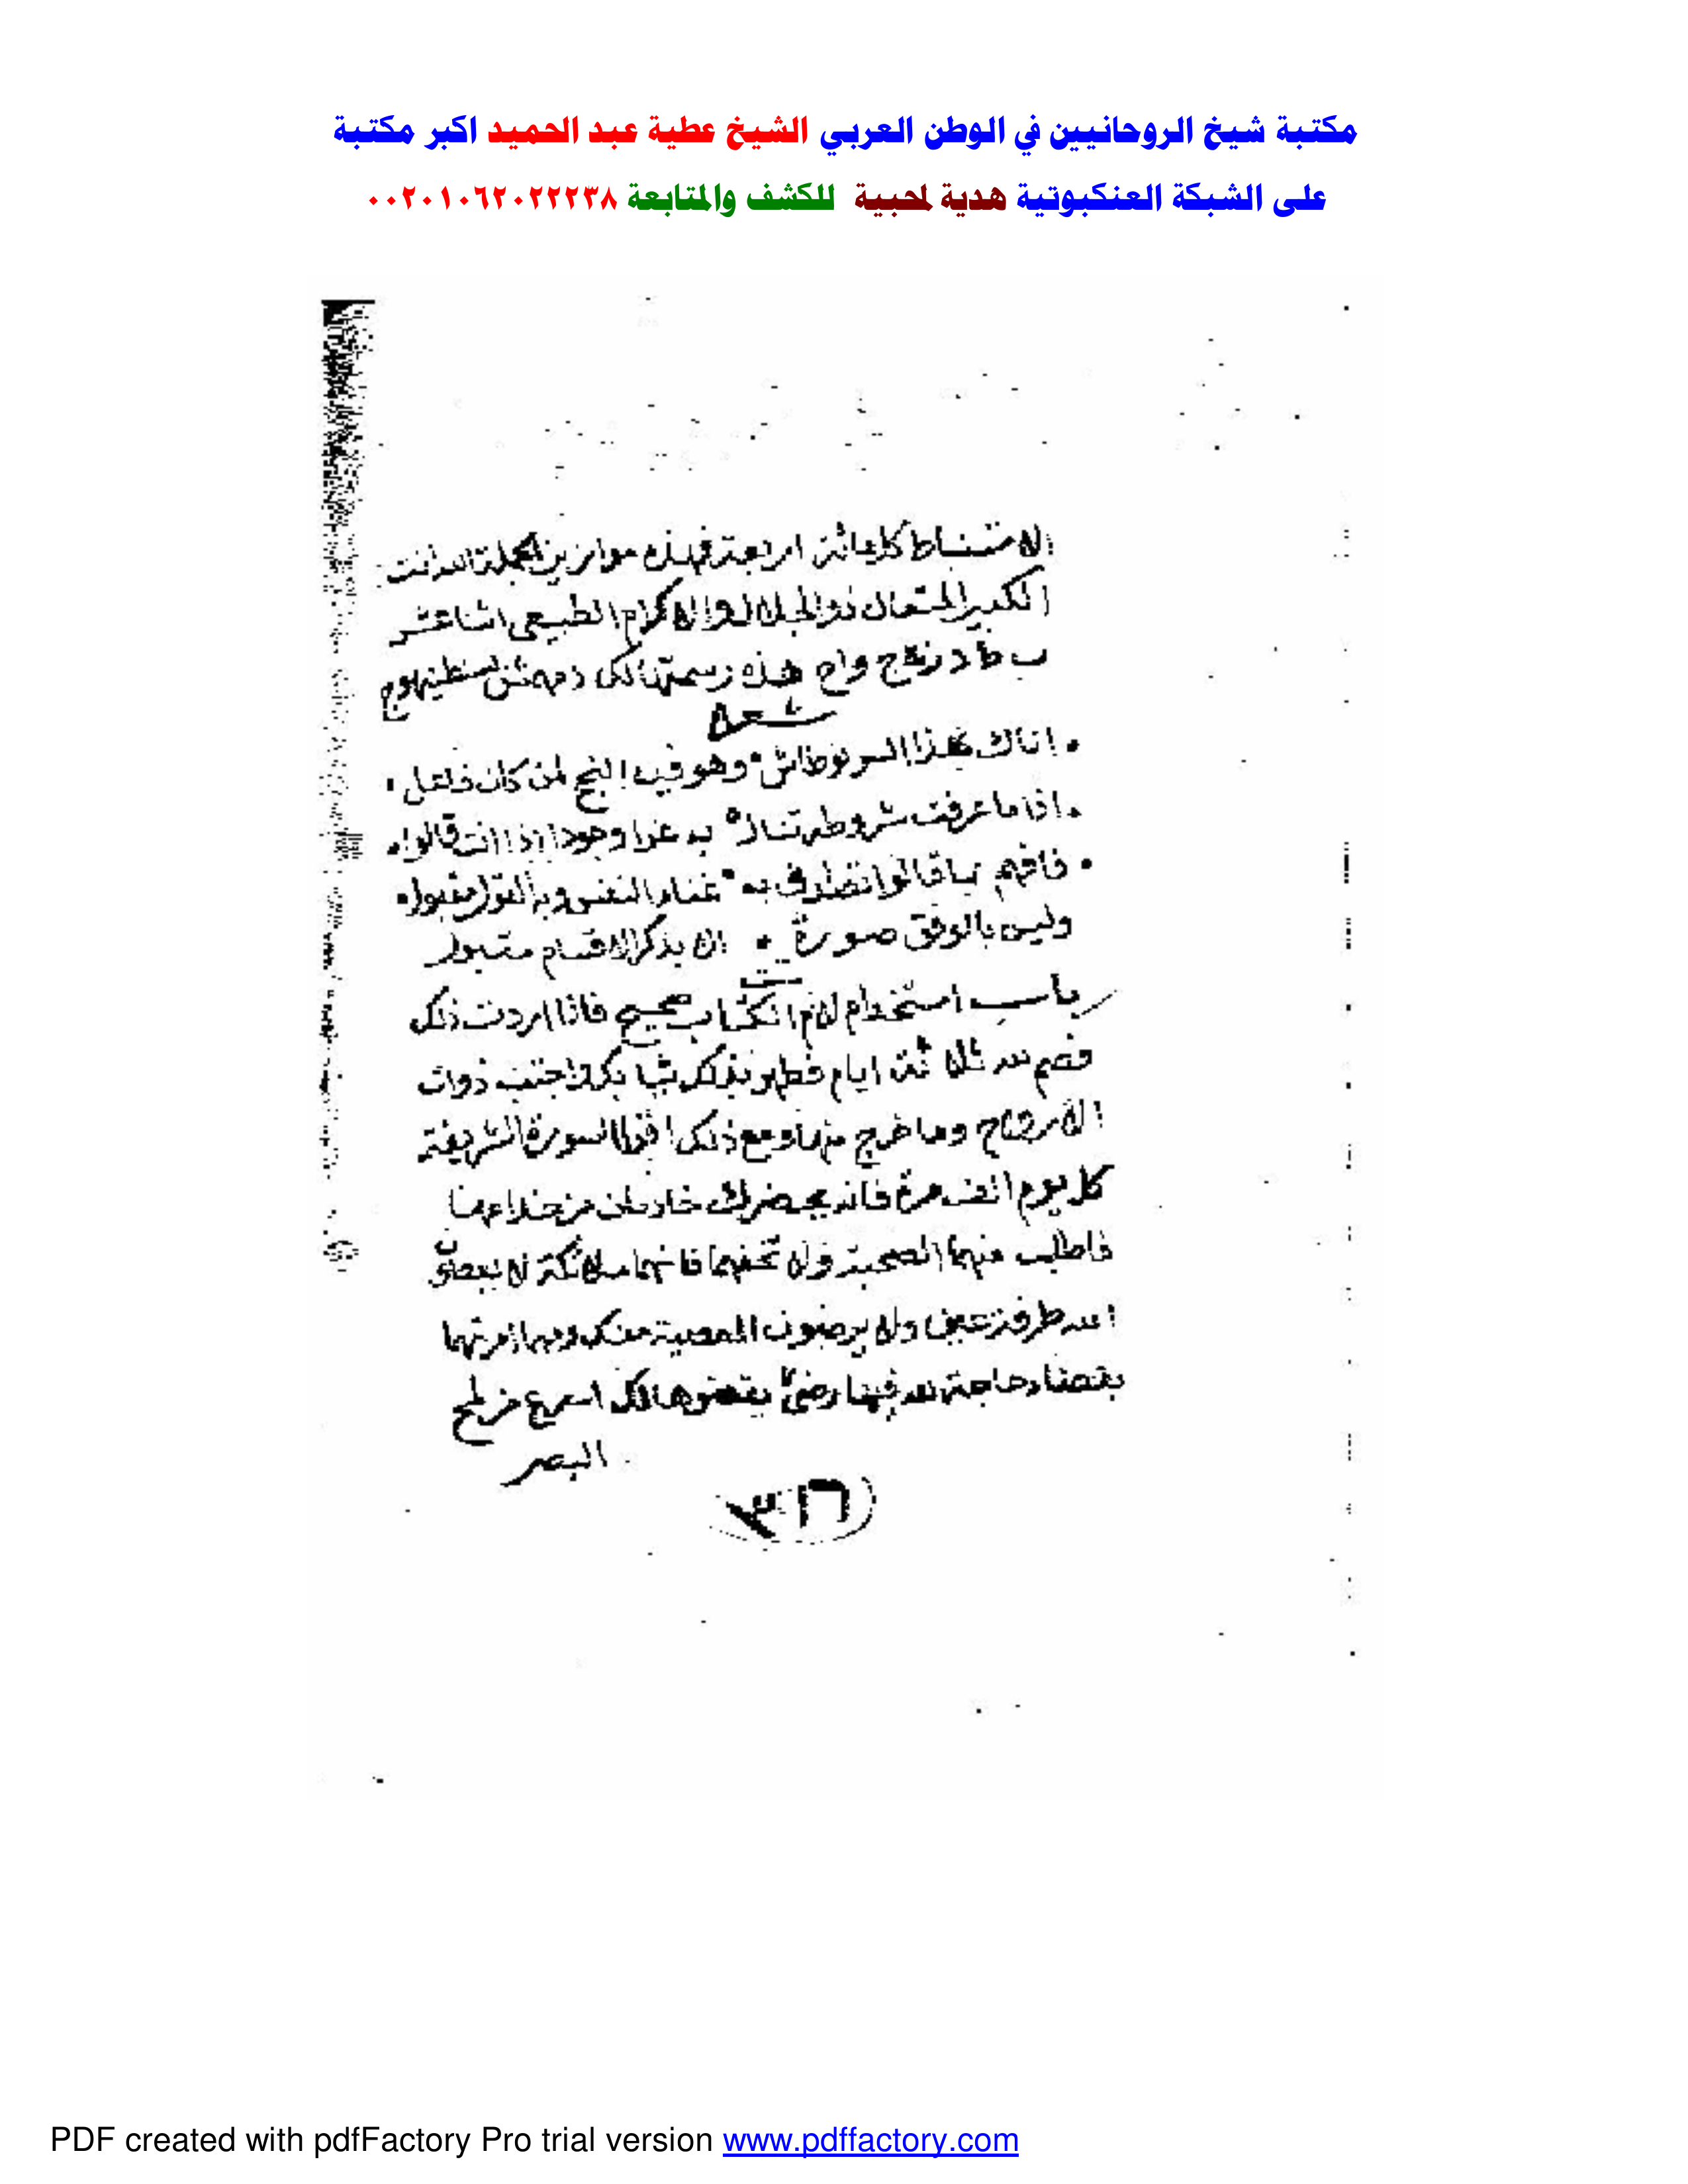 مكتبة شيخ الروحانيين في الوطن العربي الشيخ عطية عبد الحميد اكبر مكتبة
على الشبكة العنكبوتية هدية لمحبية للكشف والمتابعة ٠٠٢٠١٠٦٢٠٢٢٢٣٨
الكبير المتعال ذو الجلال والاكرام الطبيعى اثنا عشر
ب ط د ز ج واح هذه رسمتها لك
شعر
اتاك هذا السر وهو فيه النجح لمن كان فاعل
اذا ما عرفت شروطه تناله به عزا وجودا اذا انت
فافهم بما قالوا به غناء النفس وبه القول مقبول
وليس بالوفق صورة الا بذكر الاقسام مقبول
باب استخدام لام الكتاب صحيح فاذا اردت ذلك
فصم لله ثلاثة ايام واجتنب ذوات
الارواح وما خرج منها ومع ذلك اقرا السورة الشريفة
كل يوم الف مرة فانه يحضرك خادمان من خدامها
فاطلب منهما الصحبة ولا تخفهما فانهما ملائكة لا يعصون
الله طرفة عين ولا يرضون المعصية منك ومهما امرتهما
بقضاء حاجة لله فيها رضى يقضوها لك اسرع من لمح
البصر
٣٦
PDF created with pdfFactory Pro trial version www.pdffactory.com